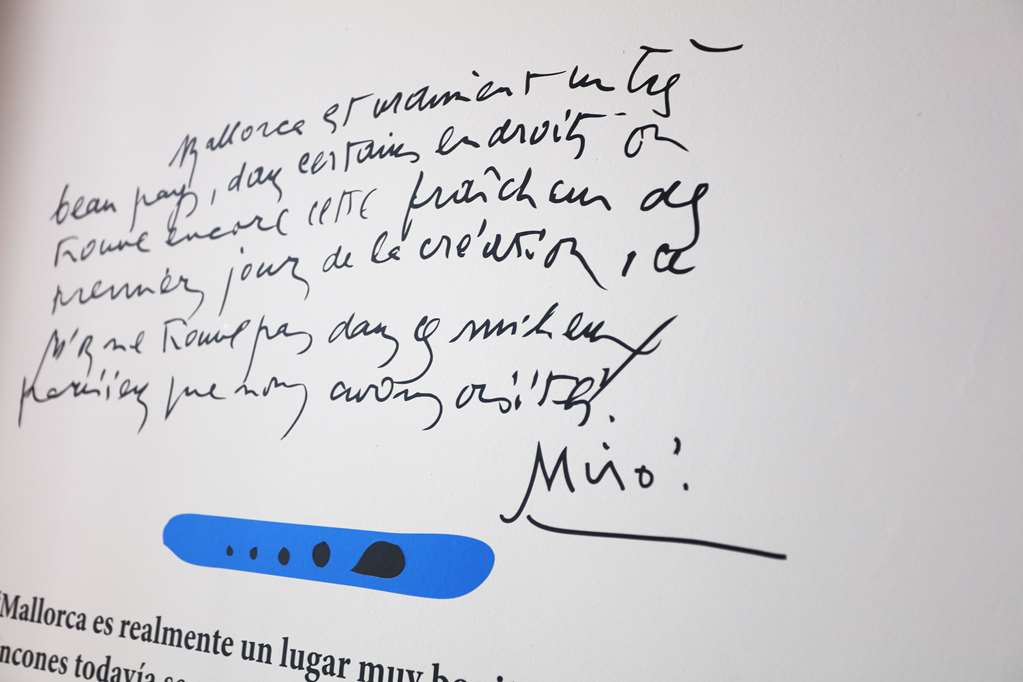 Mallorca est vraiment un très
beau pays, dans certains endroits on
trouve encore cette fraîcheur des
premiers jours de la création,
ne trouve pas dans ces milieux
parisiens que nous avons visités.
Miró.
"Mallorca es realmente un lugar muy
ncones todavía se